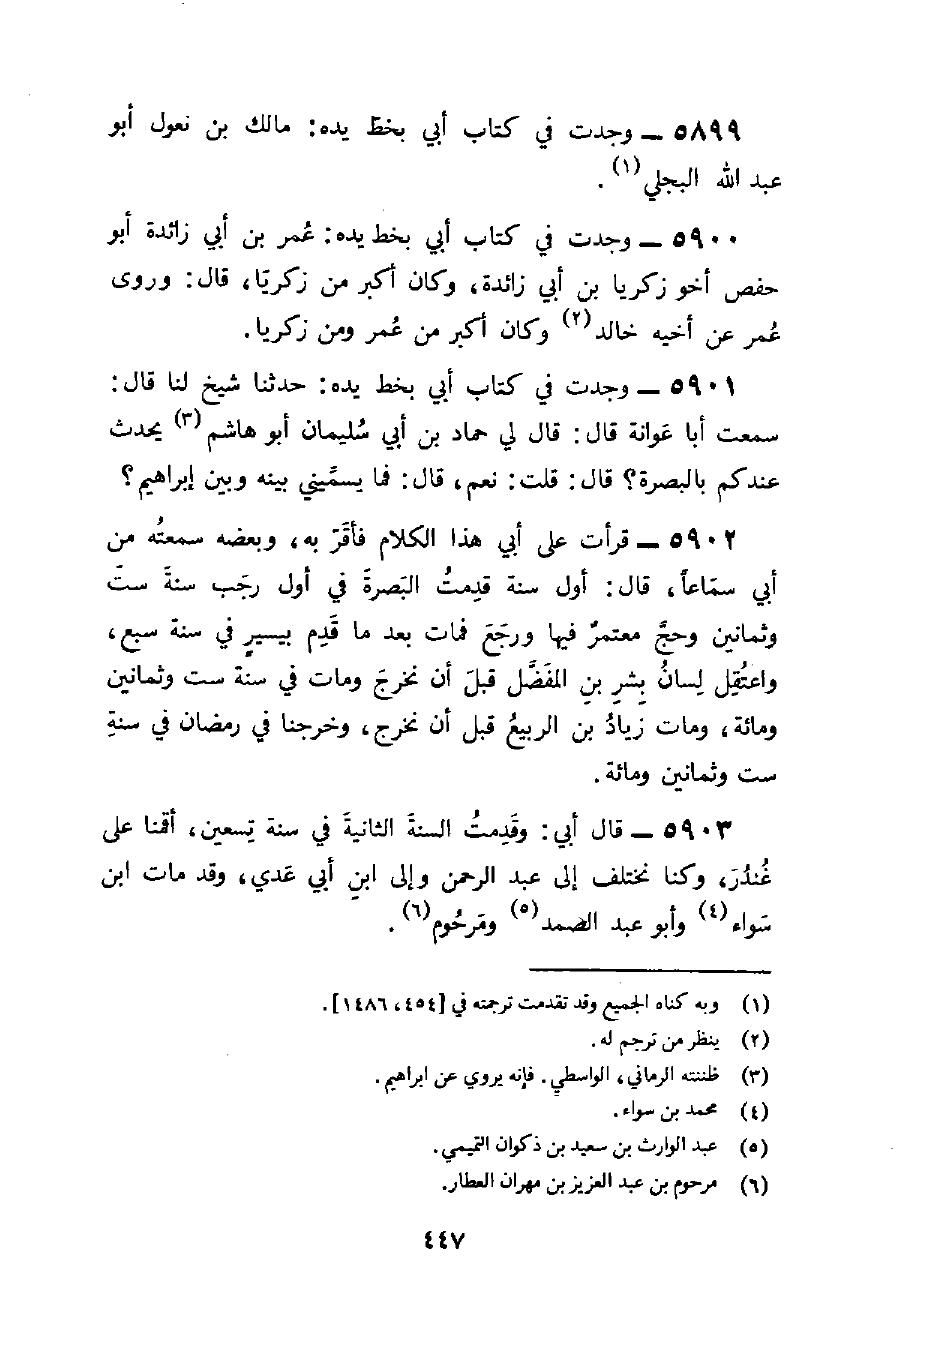 ٥٨٩٩ ــ وجدت في كتاب أبي بخطّ يده: مالك بن نعول أبو
عبد الله البجلي(١).
٥٩٠٠ ــ وجدت في كتاب أبي بخط يده: عُمر بن أبي زائدة أبو
حفص أخو زكريا بن أبي زائدة، وكان أكبر من زكريّا، قال: وروى
عُمر عن أخيه خالد(٢) وكان أكبر من عُمر ومن زكريا.
٥٩٠١ ــ وجدت في كتاب أبي بخط يده: حدثنا شيخ لنا قال:
سمعت أبا عَوانة قال: قال لي حماد بن أبي سُليمان أبو هاشم(٣) يحدث
عندكم بالبصرة؟ قال: قلت: نعم، قال: فما يسمِّيني بينه وبين إبراهيم؟
٥٩٠٢ ــ قرأت على أبي هذا الكلام فأقَرّ به، وبعضه سمعتُه من
أبي سمّاعاً، قال: أول سنة قدِمتُ البَصرةَ في أول رجَب سنةَ ستّ
وثمانين وحجَّ معتمرٌ فيها ورجَعَ فمات بعد ما قَدِم بيسيرٍ في سنة سبع،
واعتُقِل لِسانُ بِشرِ بنِ المُفَضَّل قبلَ أن نخرجَ ومات في سنة ست وثمانين
ومائة، ومات زيادُ بن الربيعُ قبل أن نخرج، وخرجنا في رمضان في سنةِ
ست وثمانين ومائة.
٥٩٠٣ ــ قال أبي: وقَدِمتُ السنةَ الثانيةَ في سنة تِسعين، أقمنا على
غُندُرَ، وكنا نختلف إلى عبد الرحمن وإلى ابنِ أبي عَدي، وقد مات ابن
سَواء(٤) وأبو عبد الصمد(٥) ومَرحُوم(٦).
(١) وبه كناه الجميع وقد تقدمت ترجمته في [٤٥٤، ١٤٨٦].
(٢) ينظر من ترجم له.
(٣) ظننته الرماني، الواسطي. فإنه يروي عن ابراهيم.
(٤) محمد بن سواء.
(٥) عبد الوارث بن سعيد بن ذكوان التميمي.
(٦) مرحوم بن عبد العزيز بن مهران العطار.
٤٤٧